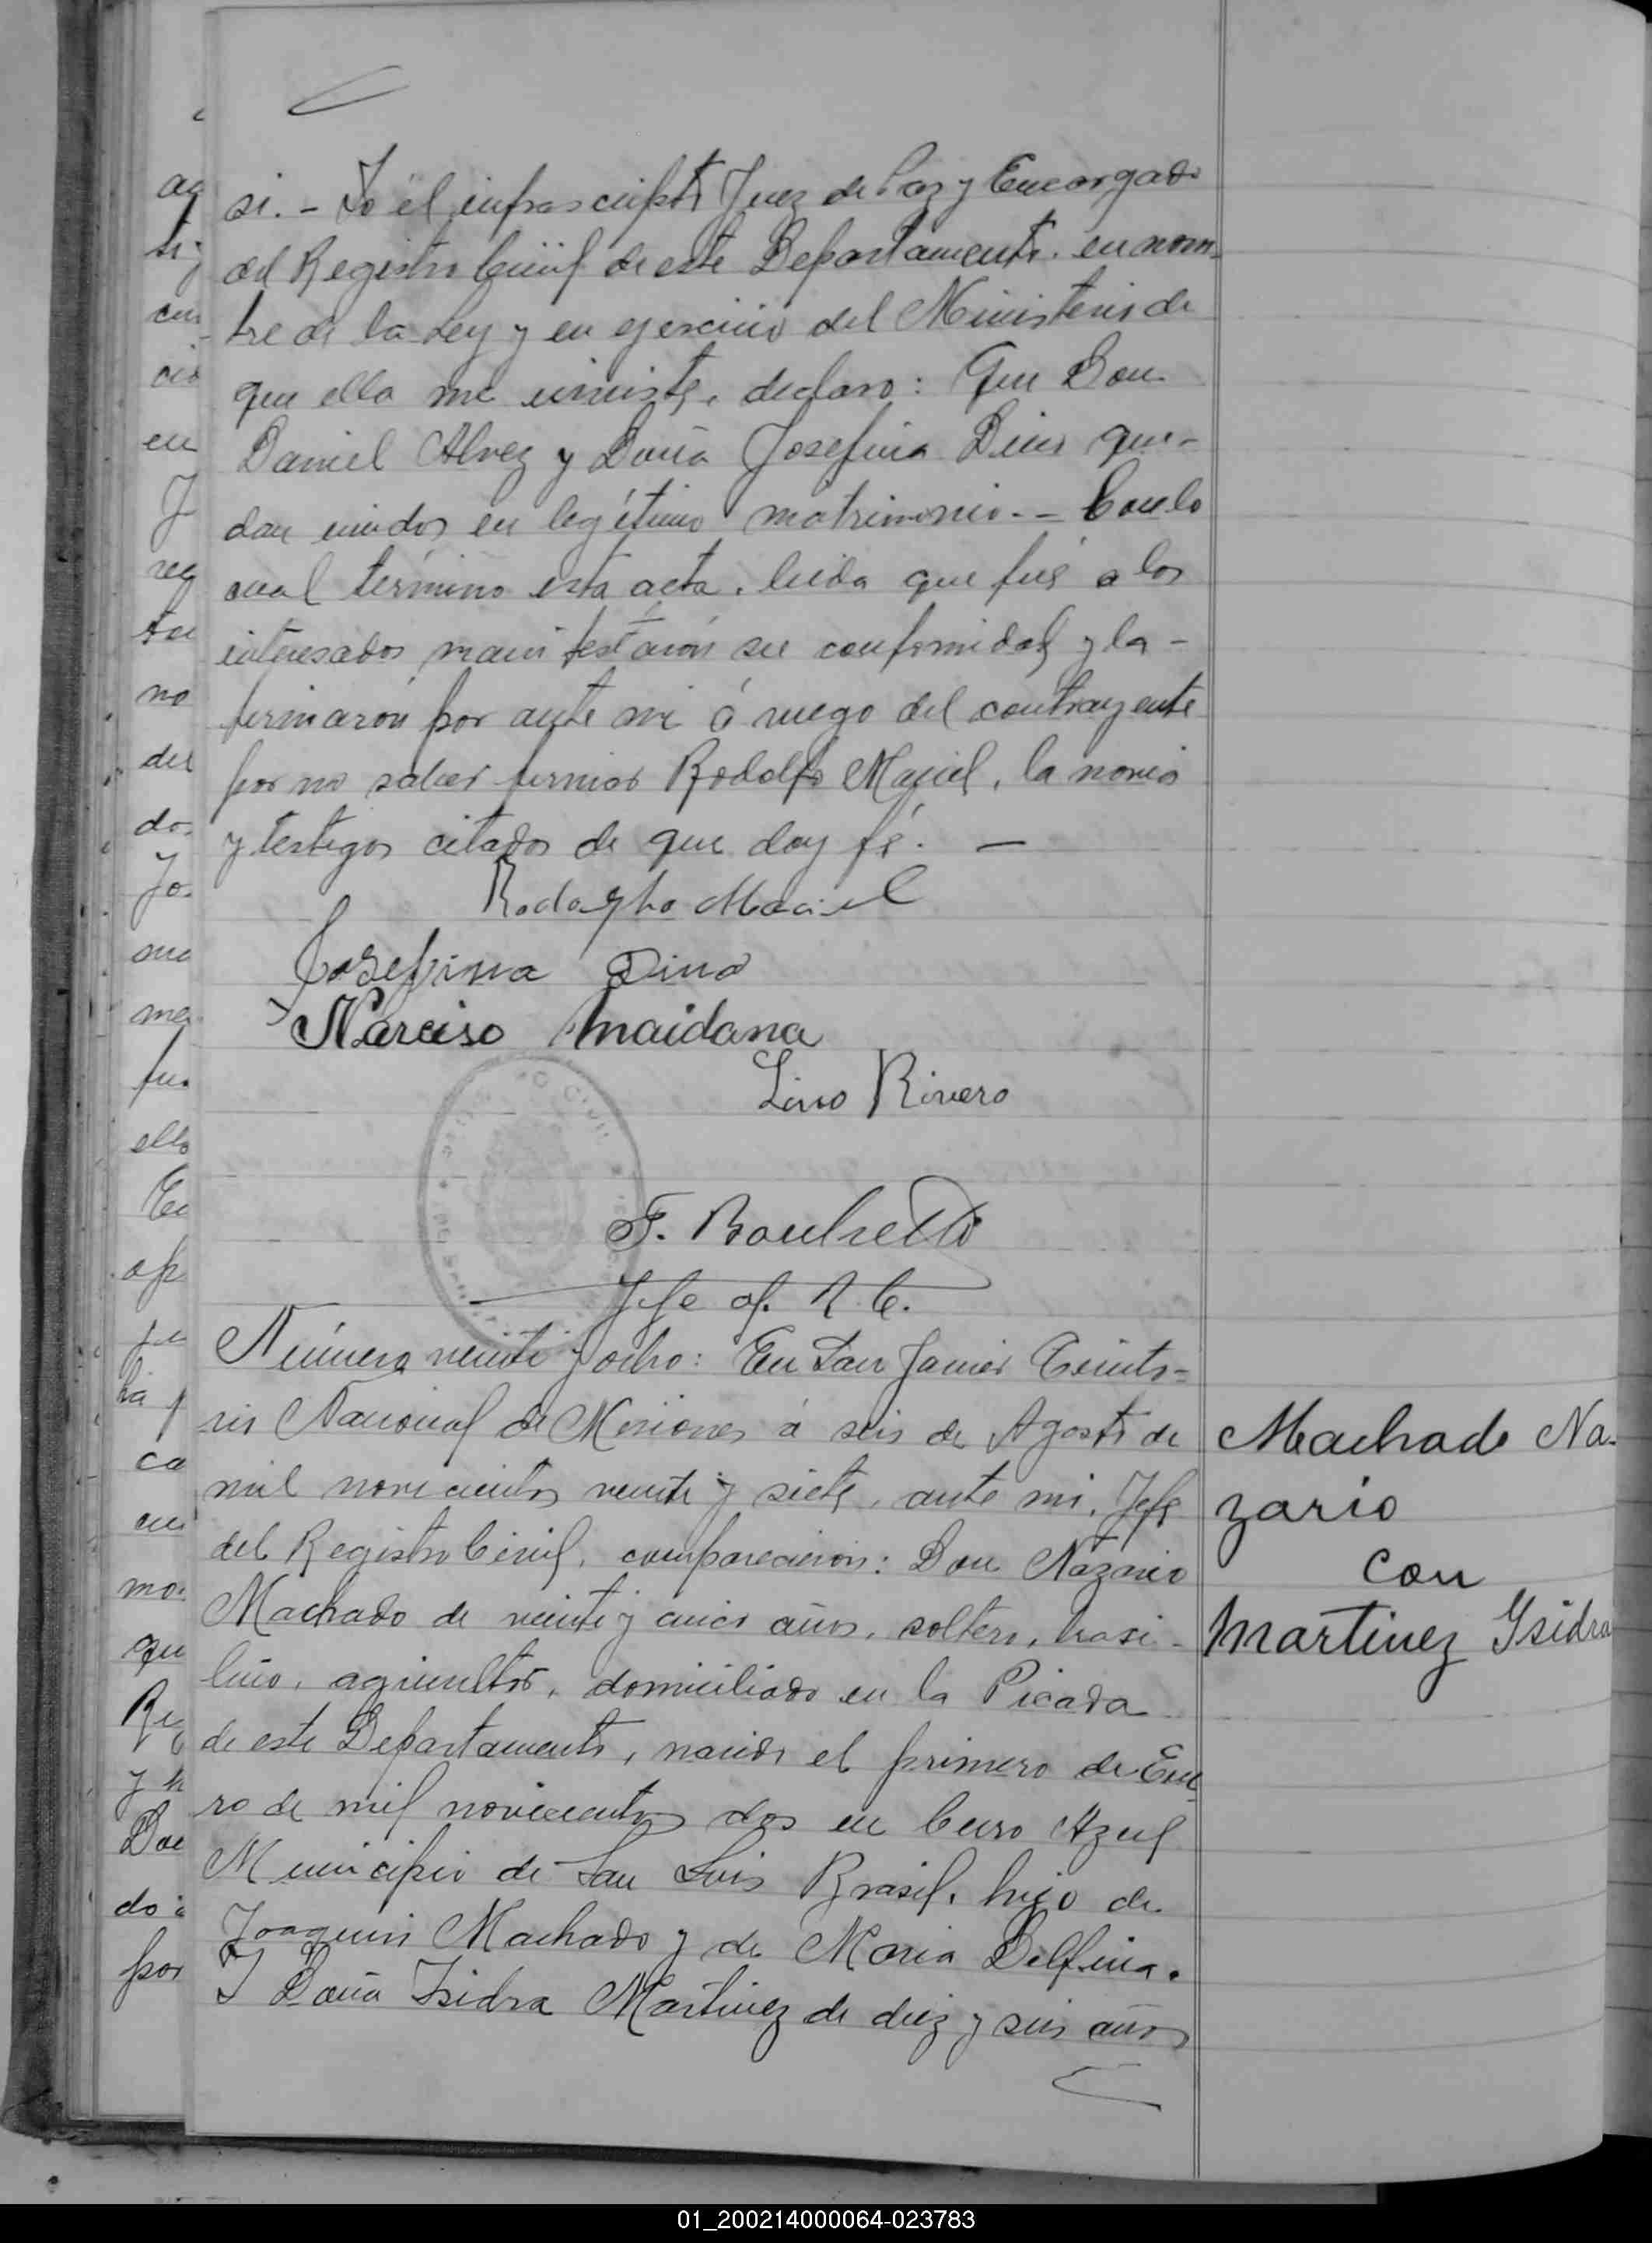 si. - Yo el infrascripto Juez de Paz y Encargado
del Registro Civil de este Departamento. en nom-
bre de la Ley y en ejercicio del Ministerio de
que ella me inviste, declaro: Que Don
Daniel Alvez y Doña Josefina Dino que-
dan unidos en legítimo matrimonio. - Con lo
cual término esta acta, leida que fué a los
interesados manifestarón su conformidad y la -
firmarón por ante mi á ruego del contrayente
por no saber firmar Rodolfo Maciel, la novia
y testigos citados de que doy fé. —
Rodolfho Maciel
Josefina Dino
Narciso Maidana
Lino Rivero
F.
Jefe of. R. C.
Número veinte y ocho: En San Javier Territo=
rio Nacional de Misiones á seis de Agosto de
mil novecientos veinte y siete, ante mi, Jefe
del Registro Civil, comparecieron: Don Nazario
Machado de veinte y cinco años, soltero, brasi-
lero, agricultor, domiciliado en la Picada
de este Departamento, nacido el primero de Ene
ro de mil novecientos dos en Cerro Azul
Municipio de San Luis Brasil, hijo de
Joaquin Machado y de Maria Delfina.
Y Doña Isidra Martinez de diez y seis años
Machado Na-
zario
con
Martinez Ysidra
01_200214000064-023783